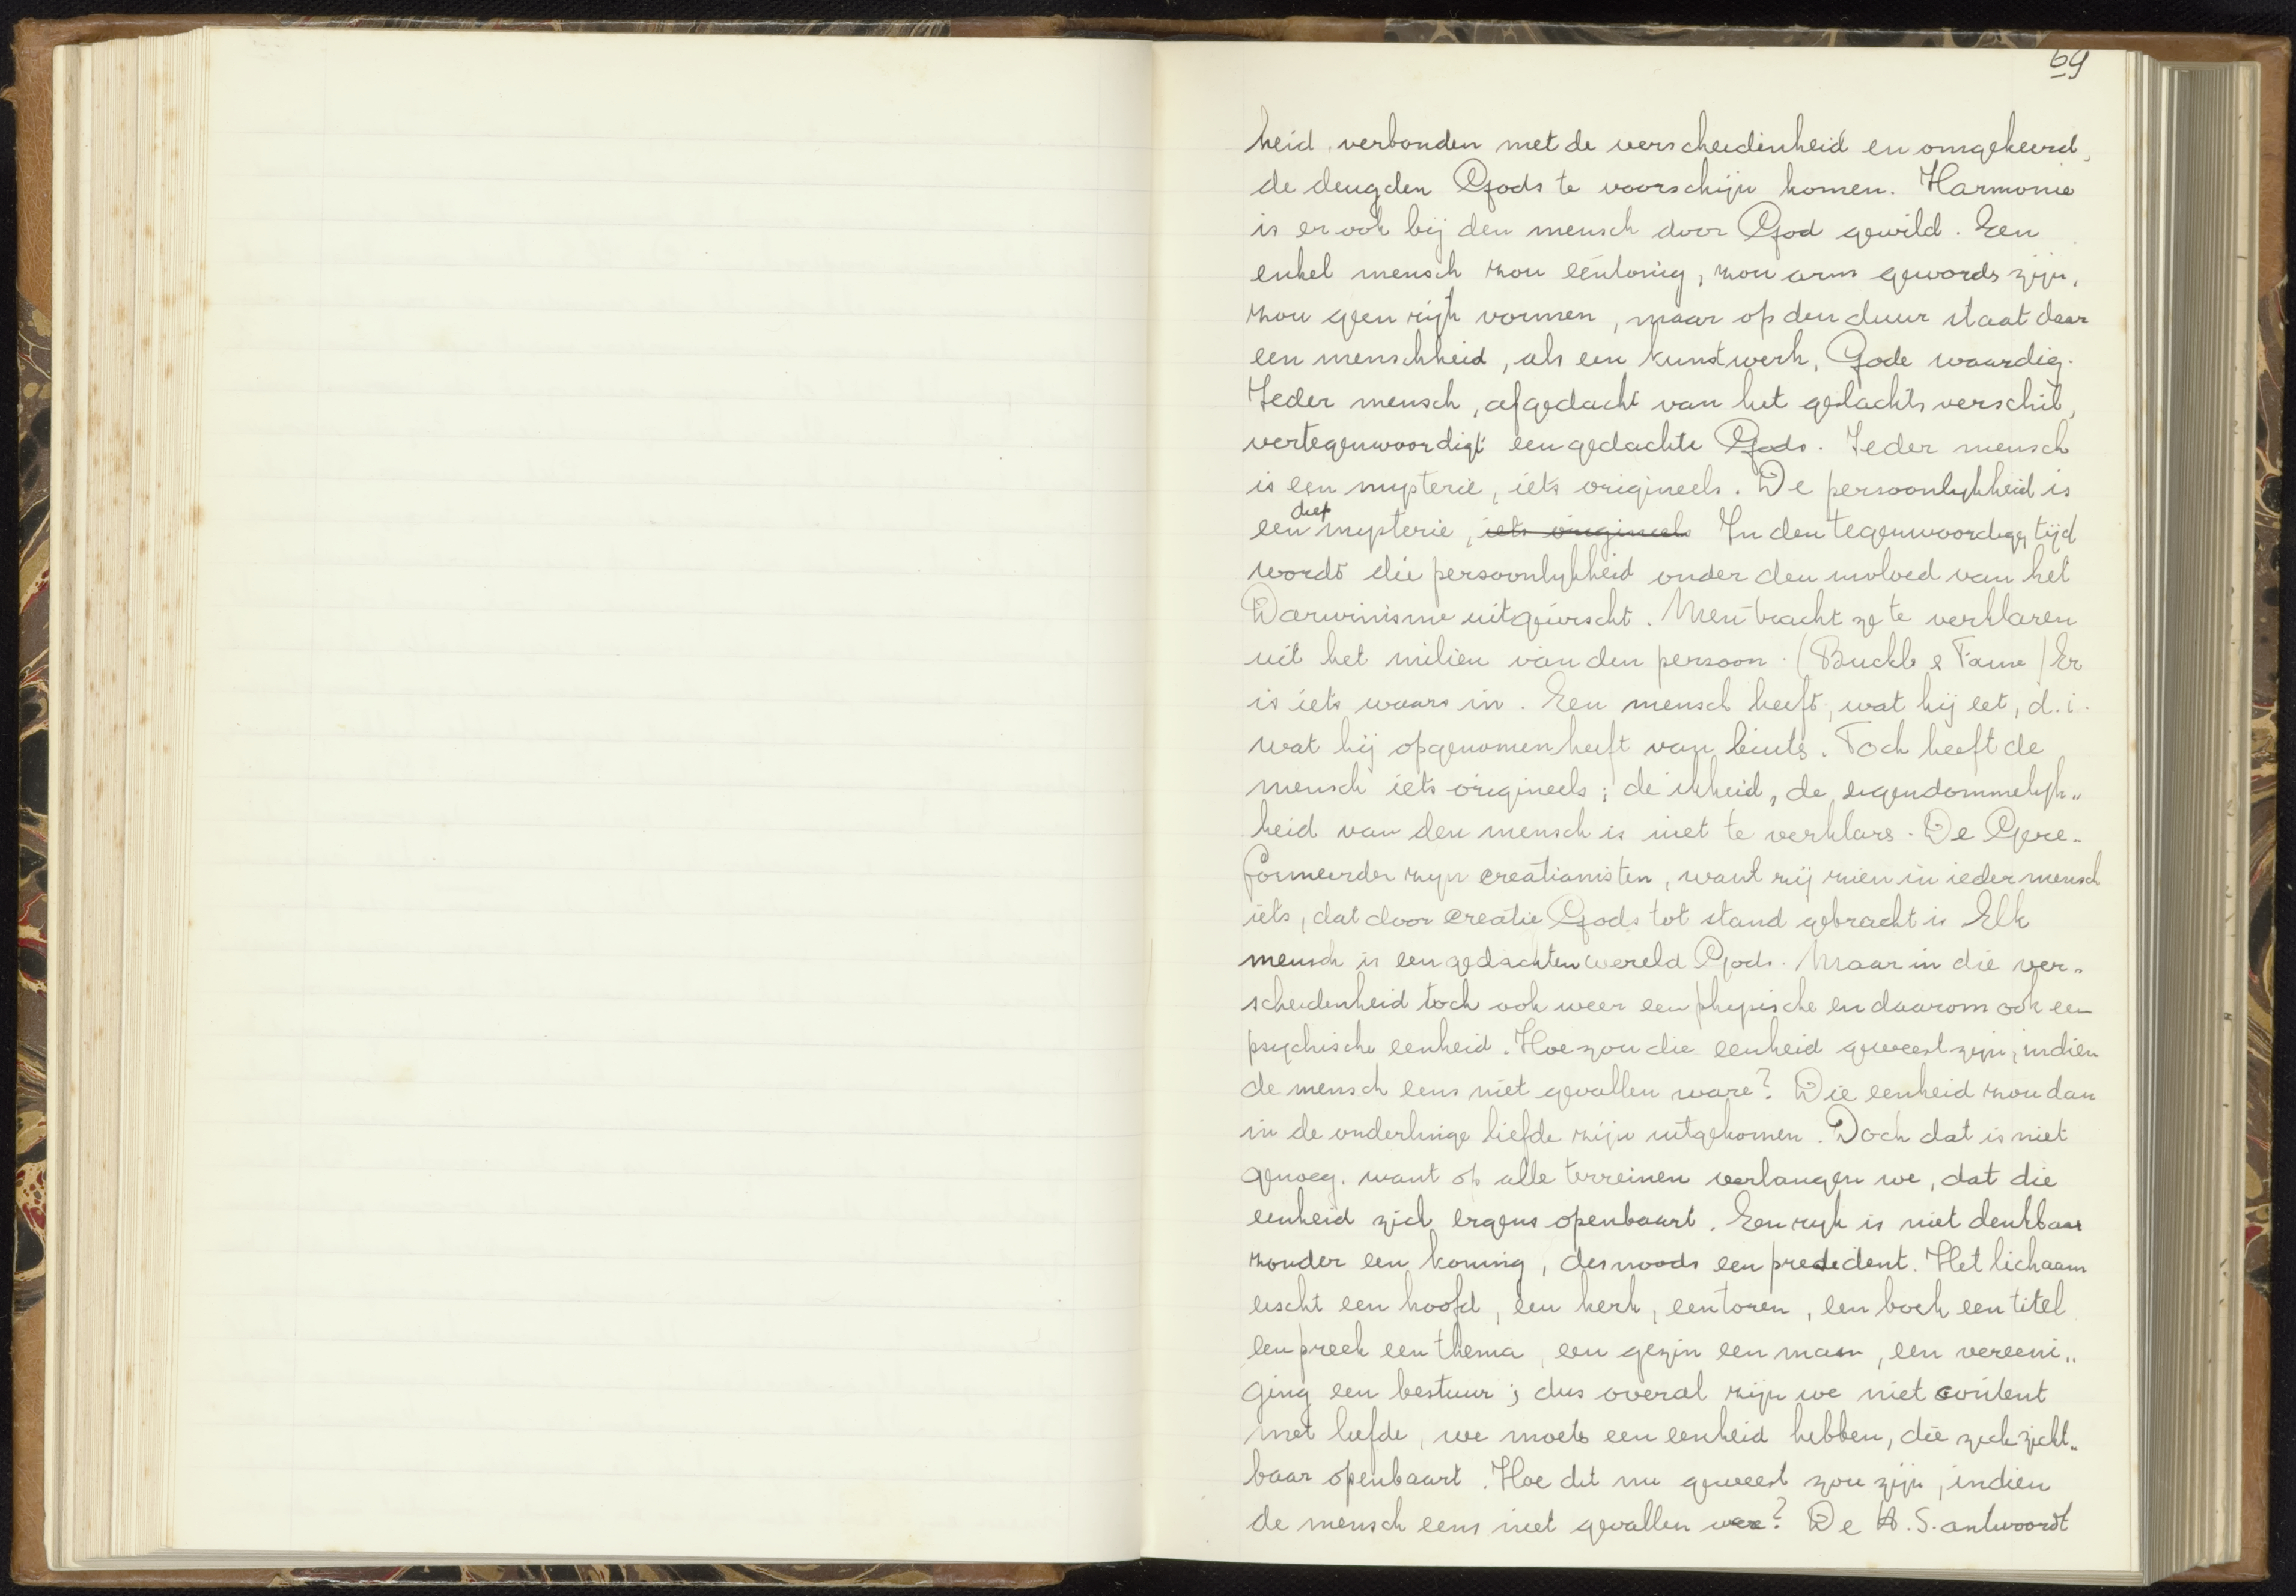 69
heid verbonden met de verscheidenheid en omgekeerd,
de deugden Gods te voorschijn komen. Harmonie
is er ook bij den mensch door God gewild. Een
enkel mensch zou eentonig, zou arm geword𝑠 zijn,
zou geen rijk vormen, maar op den duur staat daar
een menschheid, als een kunstwerk, Gode waardig.
Ieder mensch, afgedacht van het geslachtsverschil,
vertegenwoordigt een gedachte Gods. Ieder mensch
is een mysterie, iets origineels. De persoonlykheid is
een diep mysterie, iets origineels In den tegenwoordigen tijd
wordt die persoonlykheid onder den invloed van het
Darwinisme uitgewischt. Men tracht ze te verklaren
uit het milieu van den persoon. (Buckle & Taine) Er
is iets waars in. Een mensch heeft, wat hij eet, d.i.
wat hij opgenomen heeft van buiten. Toch heeft de
mensch iets origineels; de ikheid, de eigendommelyk„
heid van den mensch is niet te verklaren. De Gere-
formeerden zyn creatianisten, want zij zien in ieder mensch
iets, dat door creatie Gods tot stand gebracht is Elk
mensch is een gedachtenwereld Gods. Maar in die ver„
scheidenheid toch ook weer een physische en daarom ook een
psychische eenheid. Hoe zou die eenheid geweest zijn, indien
de mensch eens niet gevallen ware? Die eenheid zou dan
in de onderlinge liefde zijn uitgekomen. Doch dat is niet
genoeg. want op alle terreinen verlangen we, dat die
eenheid zich ergens openbaart. Een ryk is niet denkbaar
zonder een koning, desnoods een president. Het lichaam
eischt een hoofd, een kerk, een toren, een boek een titel
een preek een thema, een gezin een man, een vereeni„
ging een bestuur; dus overal zijn we niet content
met liefde, we moeten een eenheid hebben, die zich zicht„
baar openbaart. Hoe dit nu geweest zou zijn, indien
de mensch eens niet gevallen ware? De H.S. antwoordt